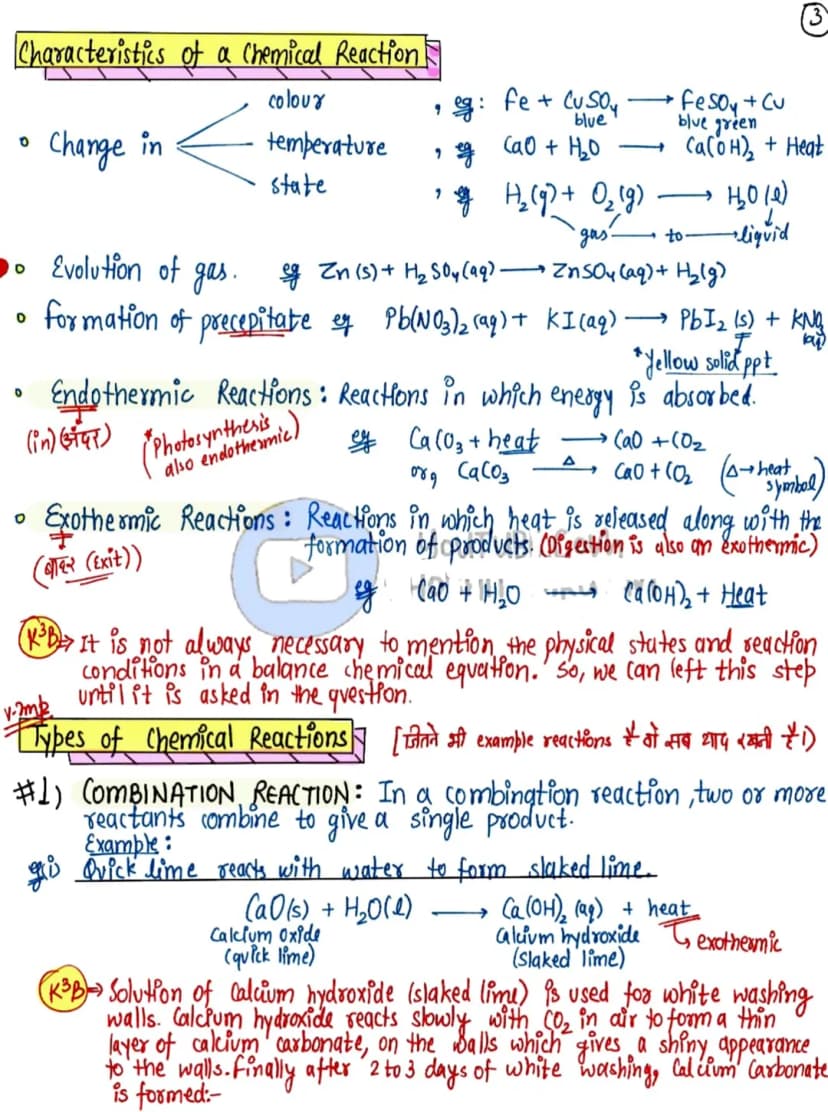 3
Characteristics of a Chemical Reaction
colour , eg: Fe + CuSO₄ → FeSO₄ + Cu
blue blue green
• Change in temperature , eg CaO + H₂O → Ca(OH)₂ + Heat
state , eg H₂(g) + O₂(g) → H₂O(l)
gas → to → liquid
• Evolution of gas. eg Zn(s) + H₂SO₄(aq) → ZnSO₄(aq) + H₂(g)
• formation of precepitate eg Pb(NO₃)₂(aq) + KI(aq) → PbI₂(s) + KNO₃
(aq)
*Yellow solid ppt
• Endothermic Reactions: Reactions in which energy is absorbed.
(in) (अंदर) (*Photosynthesis also endothermic) eg CaCO₃ + heat → CaO + CO₂
or, CaCO₃ —Δ→ CaO + CO₂ (Δ→heat symbol)
• Exothermic Reactions: Reactions in which heat is released along with the
formation of products. (Digestion is also an exothermic)
(बाहर (Exit))
eg CaO + H₂O → Ca(OH)₂ + Heat
K³B⇒ It is not always necessary to mention the physical states and reaction
conditions in a balance chemical equation. So, we can left this step
until it is asked in the question.
V.Imp.
Types of Chemical Reactions [जितने भी example reactions हैं वो सब याद रखनी हैं।)
#1) COMBINATION REACTION: In a combination reaction, two or more
reactants combine to give a single product.
Example:
eg i) Quick lime reacts with water to form slaked lime.
CaO(s) + H₂O(l) → Ca(OH)₂ (aq) + heat
Calcium Oxide Calcium hydroxide ↳ exothermic
(quick lime) (Slaked lime)
K³B⇒ Solution of Calcium hydroxide (slaked lime) is used for white washing
walls. Calcium hydroxide reacts slowly with CO₂ in air to form a thin
layer of calcium carbonate, on the walls which gives a shiny appearance
to the walls. Finally after 2 to 3 days of white washing, Calcium Carbonate
is formed:-